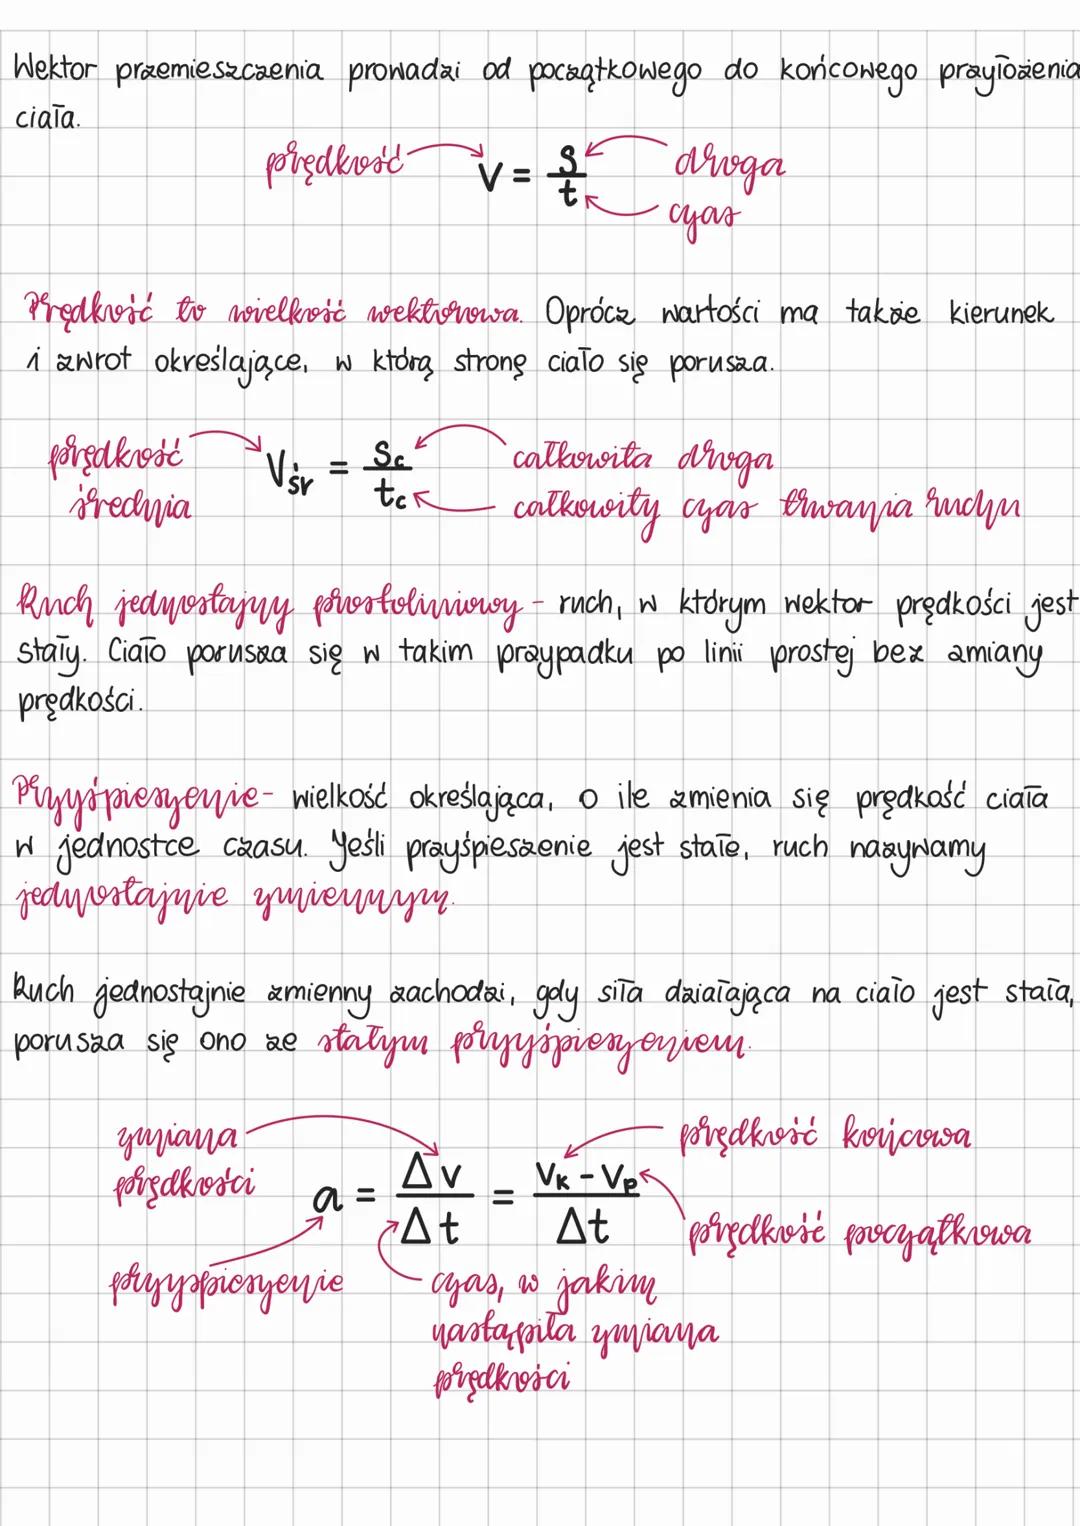 Wektor przemieszczenia prowadzi od początkowego do końcowego przyłożenia
ciała.
prędkość V = s/t droga
czas
Prędkość to wielkość wektorowa. Oprócz wartości ma także kierunek
i zwrot określające, w którą stronę ciało się porusza.
prędkość średnia Vśr = Sc/tc całkowita droga
całkowity czas trwania ruchu
Ruch jednostajny prostoliniowy - ruch, w którym wektor prędkości jest
stały. Ciało porusza się w takim przypadku po linii prostej bez zmiany
prędkości.
Przyśpieszenie - wielkość określająca, o ile zmienia się prędkość ciała
w jednostce czasu. Jeśli przyśpieszenie jest stałe, ruch nazywamy
jednostajnie zmiennym.
Ruch jednostajnie zmienny zachodzi, gdy siła działająca na ciało jest stała,
porusza się ono ze stałym przyśpieszeniem.
zmiana
prędkości
a = Δv/Δt = Vk - Vp/Δt
prędkość końcowa
prędkość początkowa
przyspieszenie
czas, w jakim
nastąpiła zmiana
prędkości